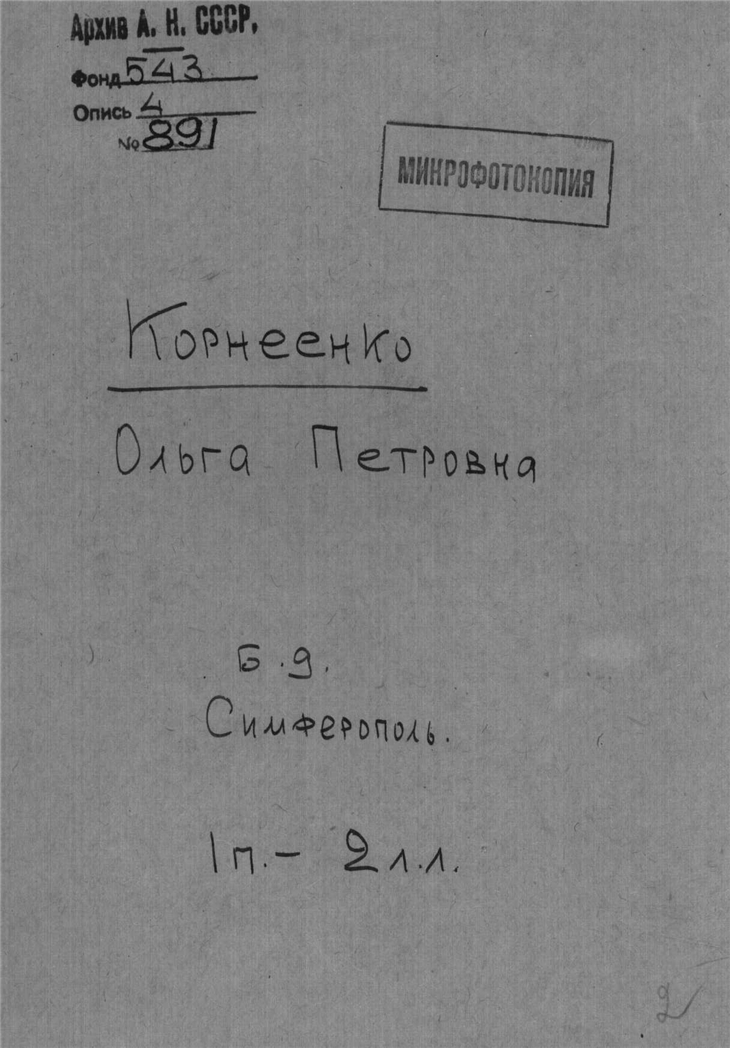 Архив А. Н. СССР.
Фонд 543
Опись 4
№ 891
МИКРОФОТОКОПИЯ
Корнеенко
Ольга Петровна
Б.д.
Симферополь.
1п.– 2л.л.
2